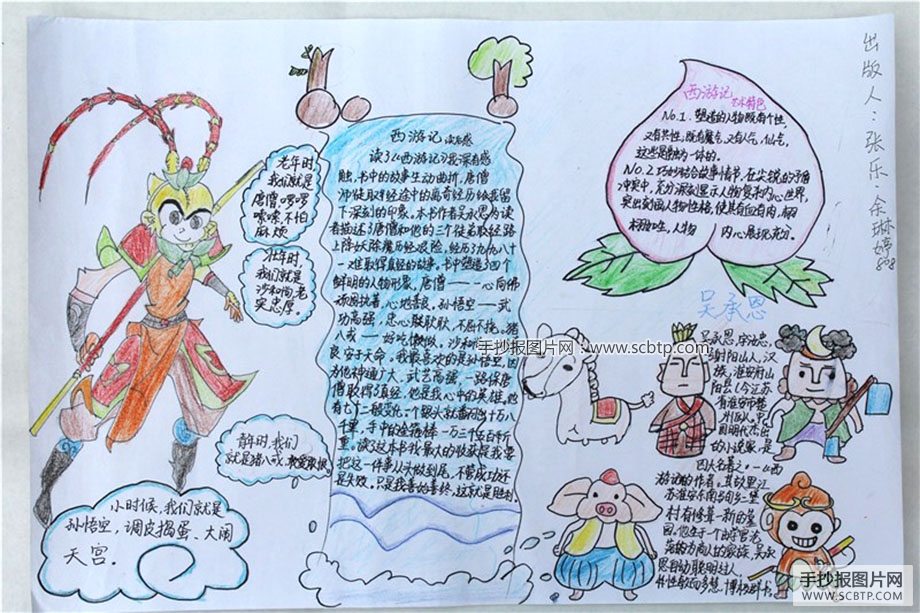 老年时
我们就是
唐僧啰啰
嗦嗦,不怕
麻烦
壮年时,
我们就是
沙和尚,老
实忠厚。
青年时,我们
就是猪八戒,
小时候,我们就是
孙悟空,调皮捣蛋、大闹
天宫.
西游记 读后感
读了《西游记》我深有感
触,书中的故事生动曲折,唐僧
师徒取经途中的离奇经历给我留
下深刻的印象。本书作者吴承恩为读
者描述了唐僧和他的三个徒弟取经路
上降妖除魔历经艰险,经历了九九八十
一难取得真经的故事。书中塑造了四个
鲜明的人物形象,唐僧——一心向佛
顽固执着,心地善良。孙悟空——武
功高强,忠心耿耿,不屈不挠。猪
八戒——好吃懒做。沙和
良安于天命。我最喜欢的是孙悟空,因
为他神通广大、武艺高强,一路保唐
僧取得真经,他是我心中的英雄,他
有七十二般变化,一个跟头就翻出十万八
千里,手中的金箍棒一万三千五百斤
重。读这本书我最大的收获是我要
把这一件事从头做到尾,不管成功还
是失败,只是我善始善终,这就是胜利
西游记
艺术特色
No.1.塑造的人物既有个性,
又有共性,既有魔气,又有人气,仙气,
这些是融为一体的。
No.2巧妙结合故事情节,在尖锐的矛盾
冲突中,充分深刻显示人物复杂内心世界,
突出刻画人物性格,使其有血有肉,栩
栩如生,人物
内心展现充分。
出版人:张乐·余琳婷
808
吴承恩
吴承恩,字汝忠,
号射阳山人,汉
族,淮安府山
阳县(今江苏
省淮安市楚
州区)人。中
国明代杰出
的小说家,是
四大名著之一《西
游记》的作者。其故里江
苏淮安东南马甸乡二堡
村有修葺一新的墓
园。他生于一个由学官沦
落为商人的家族,吴承
恩自幼聪明过人,
博极群书
手抄报图片网:www.scbtp.com
手抄报图片网
WWW.SCBTP.COM